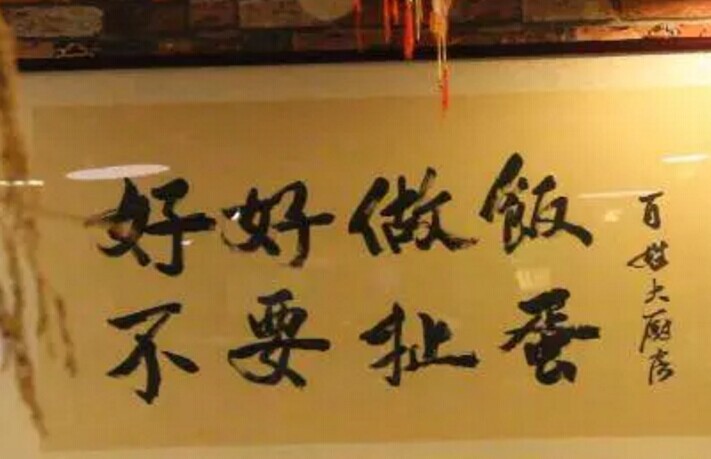 好好做飯
不要扯蛋
百姓大厨房